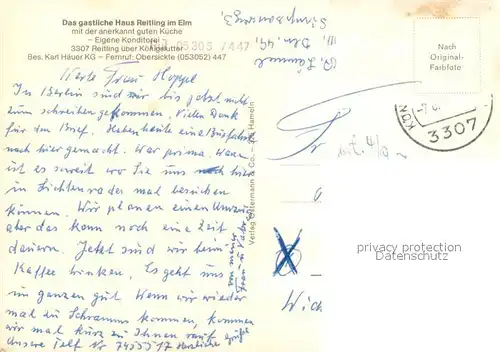 Das gastliche Haus Reitling im Elm
mit der anerkannt guten Küche
– Eigene Konditorei –
3307 Reitling über Königslutter
Bes. Karl Häuer KG – Fernruf: Obersickte (053052) 447
05305 7447
Werte Frau Hoppe
In Berlin sind wir bis jetzt nicht
zum schreiben gekommen. Vielen Dank
für den Brief. Haben heute eine Busfahrt
nach hier gemacht. War prima. Wann
ist es soweit wo Sie uns hier
in Lichtenrade mal besuchen
können. Wir planen einen Umzug
aber das kann noch eine Zeit
dauern. Jetzt sind wir beim
Kaffee trinken. Es geht uns
im ganzen gut. Wenn wir wieder
mal zu Schramms kommen, kommen
wir mal kurz zu Ihnen rauf
Unsere Telf Nr 7455517 Herzliche Grüße
von meiner
Frau u.
Verlag Ostermann & Co., Hameln
Nach
Original-
Farbfoto
3307
Fr
privacy protection
Datenschutz